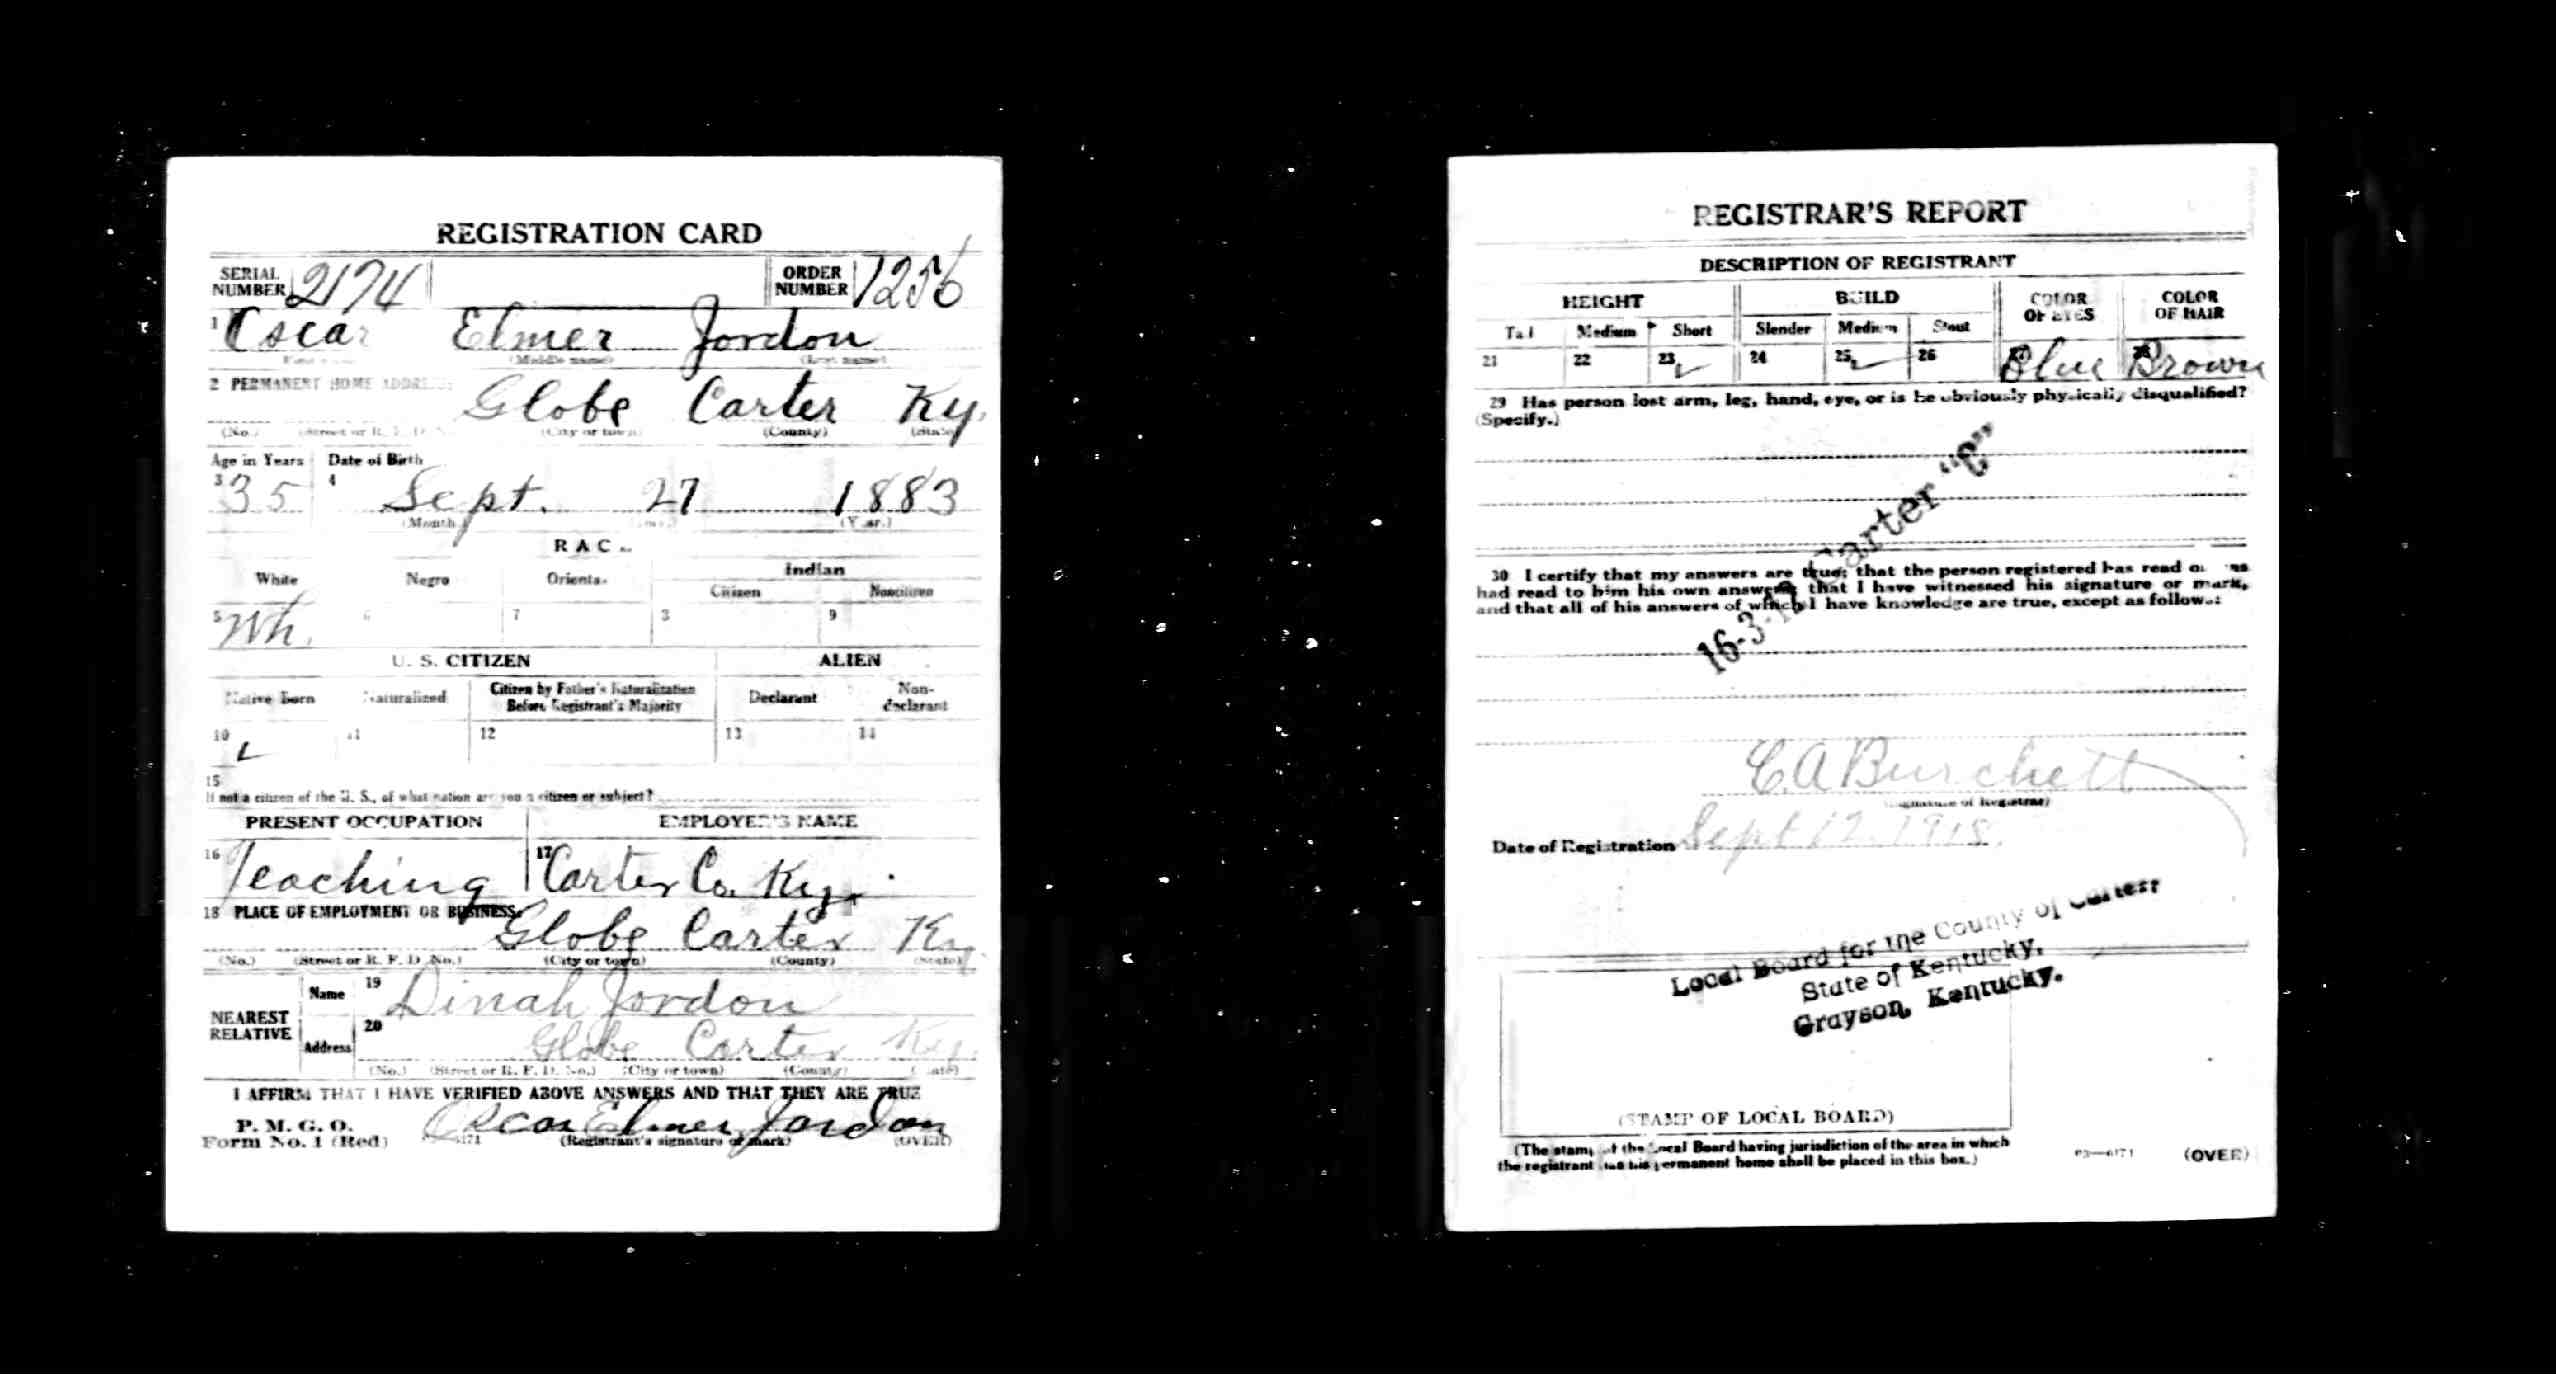 REGISTRATION CARD
SERIAL NUMBER 2174 ORDER NUMBER 1256
1 Oscar Elmer Jordon
(Middle name) (Last name)
2 PERMANENT HOME ADDRESS:
Globe Carter Ky.
(No.) (Street or R. F. D. No.) (City or town) (County) (State)
Age in Years Date of Birth
3 35 4 Sept. 27 1883
(Month.) (Year.)
RACE
White Negro Oriental Indian
Citizen Noncitizen
5 Wh. 6 7 8 9
U. S. CITIZEN ALIEN
Native Born Naturalized Citizen by Father's Naturalization Before Registrant's Majority Declarant Non-declarant
10 ✓ 11 12 13 14
15
If not a citizen of the U. S., of what nation are you a citizen or subject?
PRESENT OCCUPATION EMPLOYER'S NAME
16 Teaching 17 Carter Co. Ky.
18 PLACE OF EMPLOYMENT OR BUSINESS:
Globe Carter Ky.
(No.) (Street or R. F. D. No.) (City or town) (County) (State)
NEAREST RELATIVE Name 19 Dinah Jordon
Address 20 Globe Carter Ky.
(No.) (Street or R. F. D. No.) (City or town) (County) (State)
I AFFIRM THAT I HAVE VERIFIED ABOVE ANSWERS AND THAT THEY ARE TRUE
P. M. G. O.
Form No. 1 (Red) Oscar Elmer Jordon
(Registrant's signature or mark) (OVER)
REGISTRAR'S REPORT
DESCRIPTION OF REGISTRANT
HEIGHT BUILD COLOR OF EYES COLOR OF HAIR
Tall Medium Short Slender Medium Stout
21 22 23 ✓ 24 25 ✓ 26 Blue Brown
29 Has person lost arm, leg, hand, eye, or is he obviously physically disqualified?
(Specify.)
30 I certify that my answers are true; that the person registered has read or has
had read to him his own answers; that I have witnessed his signature or mark,
and that all of his answers of which I have knowledge are true, except as follows:
16-3-12 Carter "C"
C. A Burchett
(Signature of Registrar)
Date of Registration Sept 12. 1918.
Local Board for the County of Carter,
State of Kentucky,
Grayson, Kentucky.
(STAMP OF LOCAL BOARD)
(The stamp of the Local Board having jurisdiction of the area in which
the registrant has his permanent home shall be placed in this box.)
(OVER)